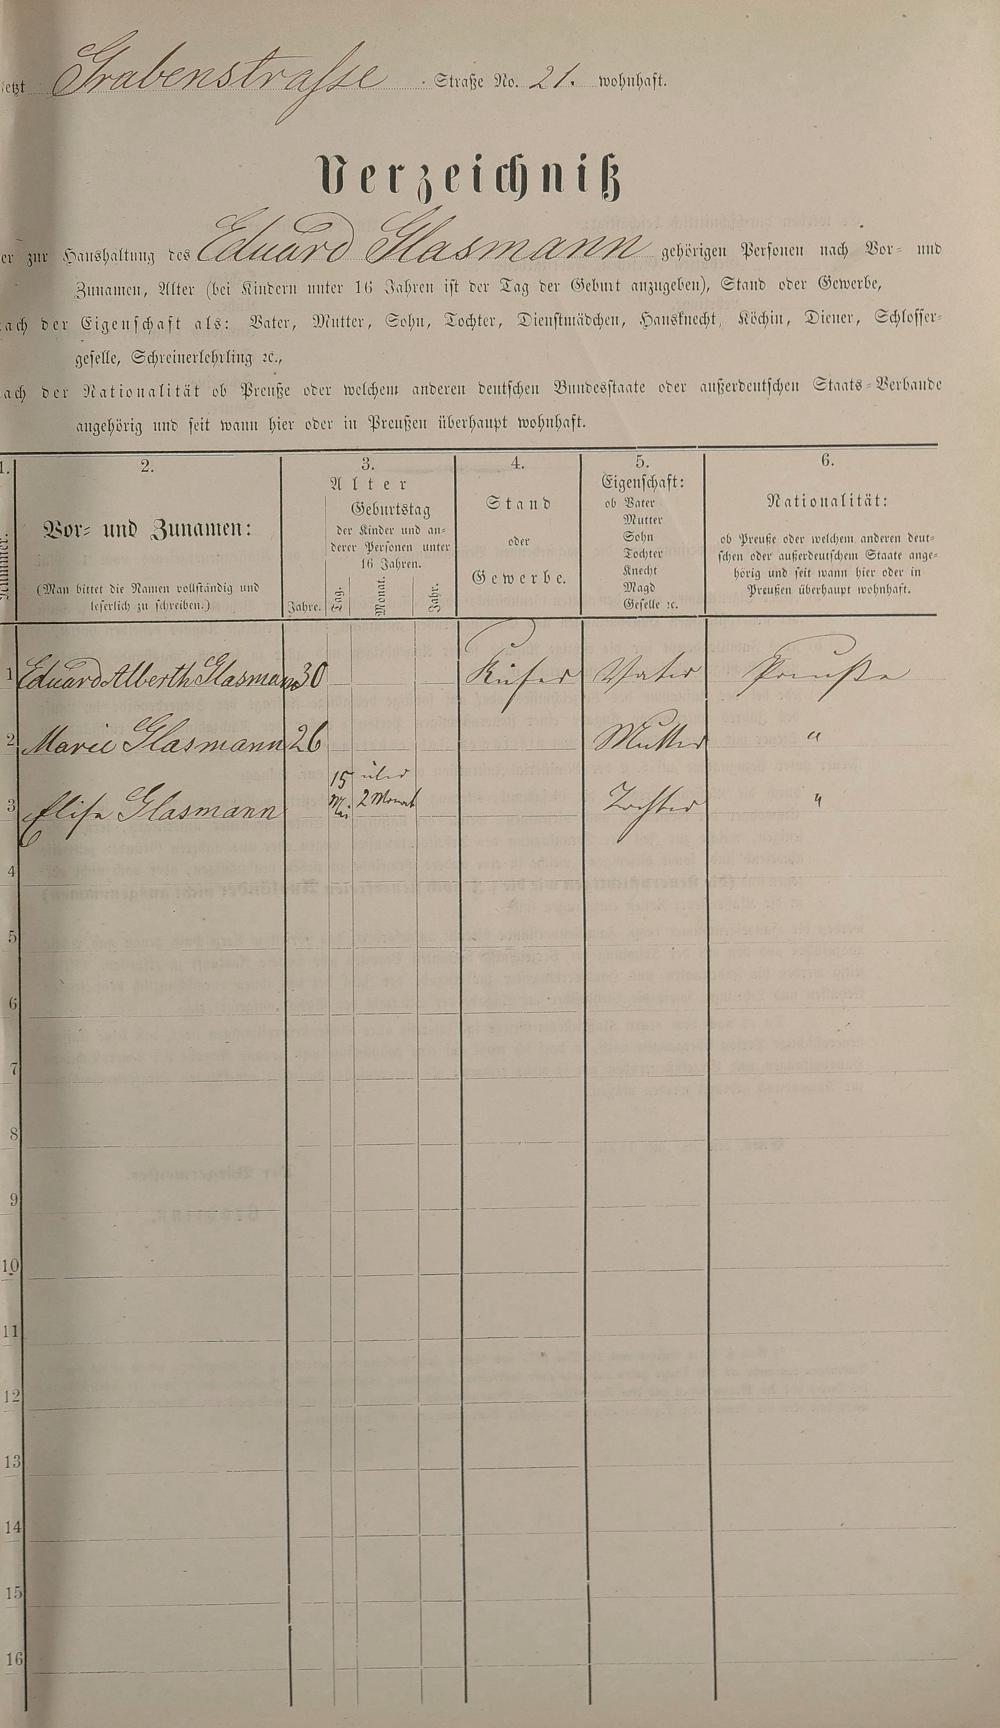 jetzt Grabenstrasse Straße No. 21. wohnhaft.
Verzeichniß
der zur Haushaltung des Eduard Glasmann gehörigen Personen nach Vor- und
Zunamen, Alter (bei Kindern unter 16 Jahren ist der Tag der Geburt anzugeben), Stand oder Gewerbe,
nach der Eigenschaft als: Vater, Mutter, Sohn, Tochter, Dienstmädchen, Hausknecht, Köchin, Diener, Schlosser-
geselle, Schreinerlehrling ꝛc.,
nach der Nationalität ob Preuße oder welchem anderen deutschen Bundesstaate oder außerdeutschen Staats-Verbande
angehörig und seit wann hier oder in Preußen überhaupt wohnhaft.
1.
Nummer.
2.
Vor- und Zunamen:
(Man bittet die Namen vollständig und
leserlich zu schreiben.)
3.
Alter
Geburtstag
der Kinder und an-
derer Personen unter
16 Jahren.
Jahre. Tag. Monat. Jahr.
4.
Stand
oder
Gewerbe.
5.
Eigenschaft:
ob Vater
Mutter
Sohn
Tochter
Knecht
Magd
Geselle ꝛc.
6.
Nationalität:
ob Preuße oder welchem anderen deut-
schen oder außerdeutschem Staate ange-
hörig und seit wann hier oder in
Preußen überhaupt wohnhaft.
1 Eduard Alberth Glasmann 30 Küfer Vater Preuße
2 Marie Glasmann 26 Mutter "
15 über
3 Elise Glasmann 2 Monat Tochter "
4
5
6
7
8
9
10
11
12
13
14
15
16